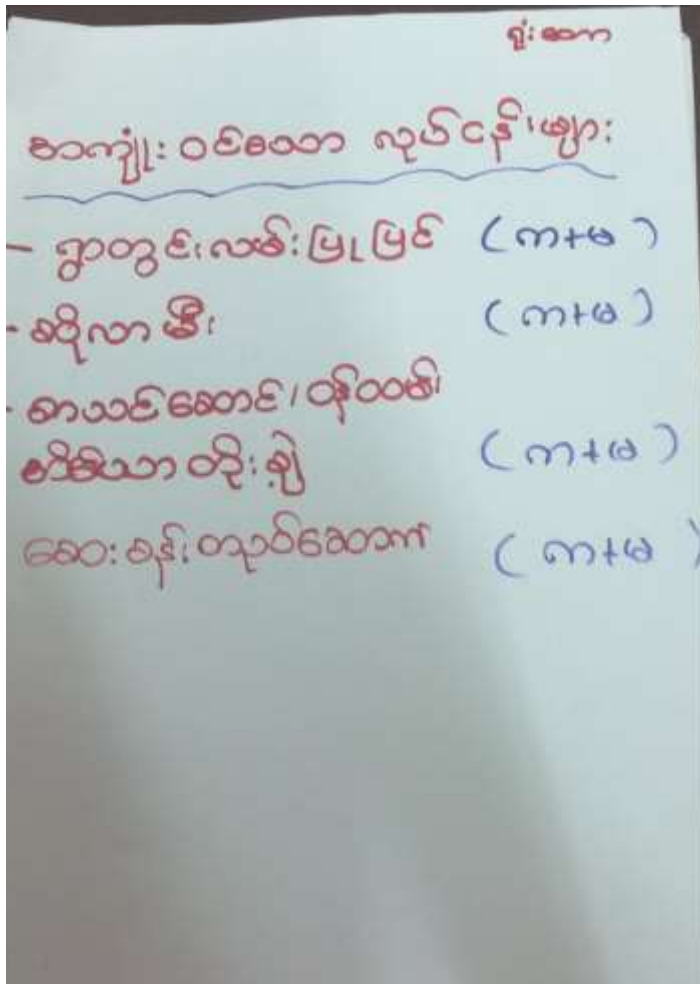 ရှုံးတော
စာကျုံးဝင်သော လုပ်ငန်းများ
- ရွာတွင်းလမ်းပြုပြင် (က+မ)
- ဆိုလာမီး (က+မ)
- စာသင်ဆောင်၊ ဝန်ထမ်း
တိုးချဲ့ (က+မ)
ဆေးခန်း တည်ဆောက် (က+မ)